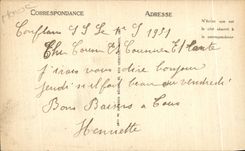 CORRESPONDANCE
ADRESSE
N'écrire que sur
le côté réservé à
la correspondance
Conflans le 1951
Cher Cousin et Cousine et
J'irais vous dire bonjour
jeudi s'il fait beau ou vendredi
Bons Baisers a tous
Henriette